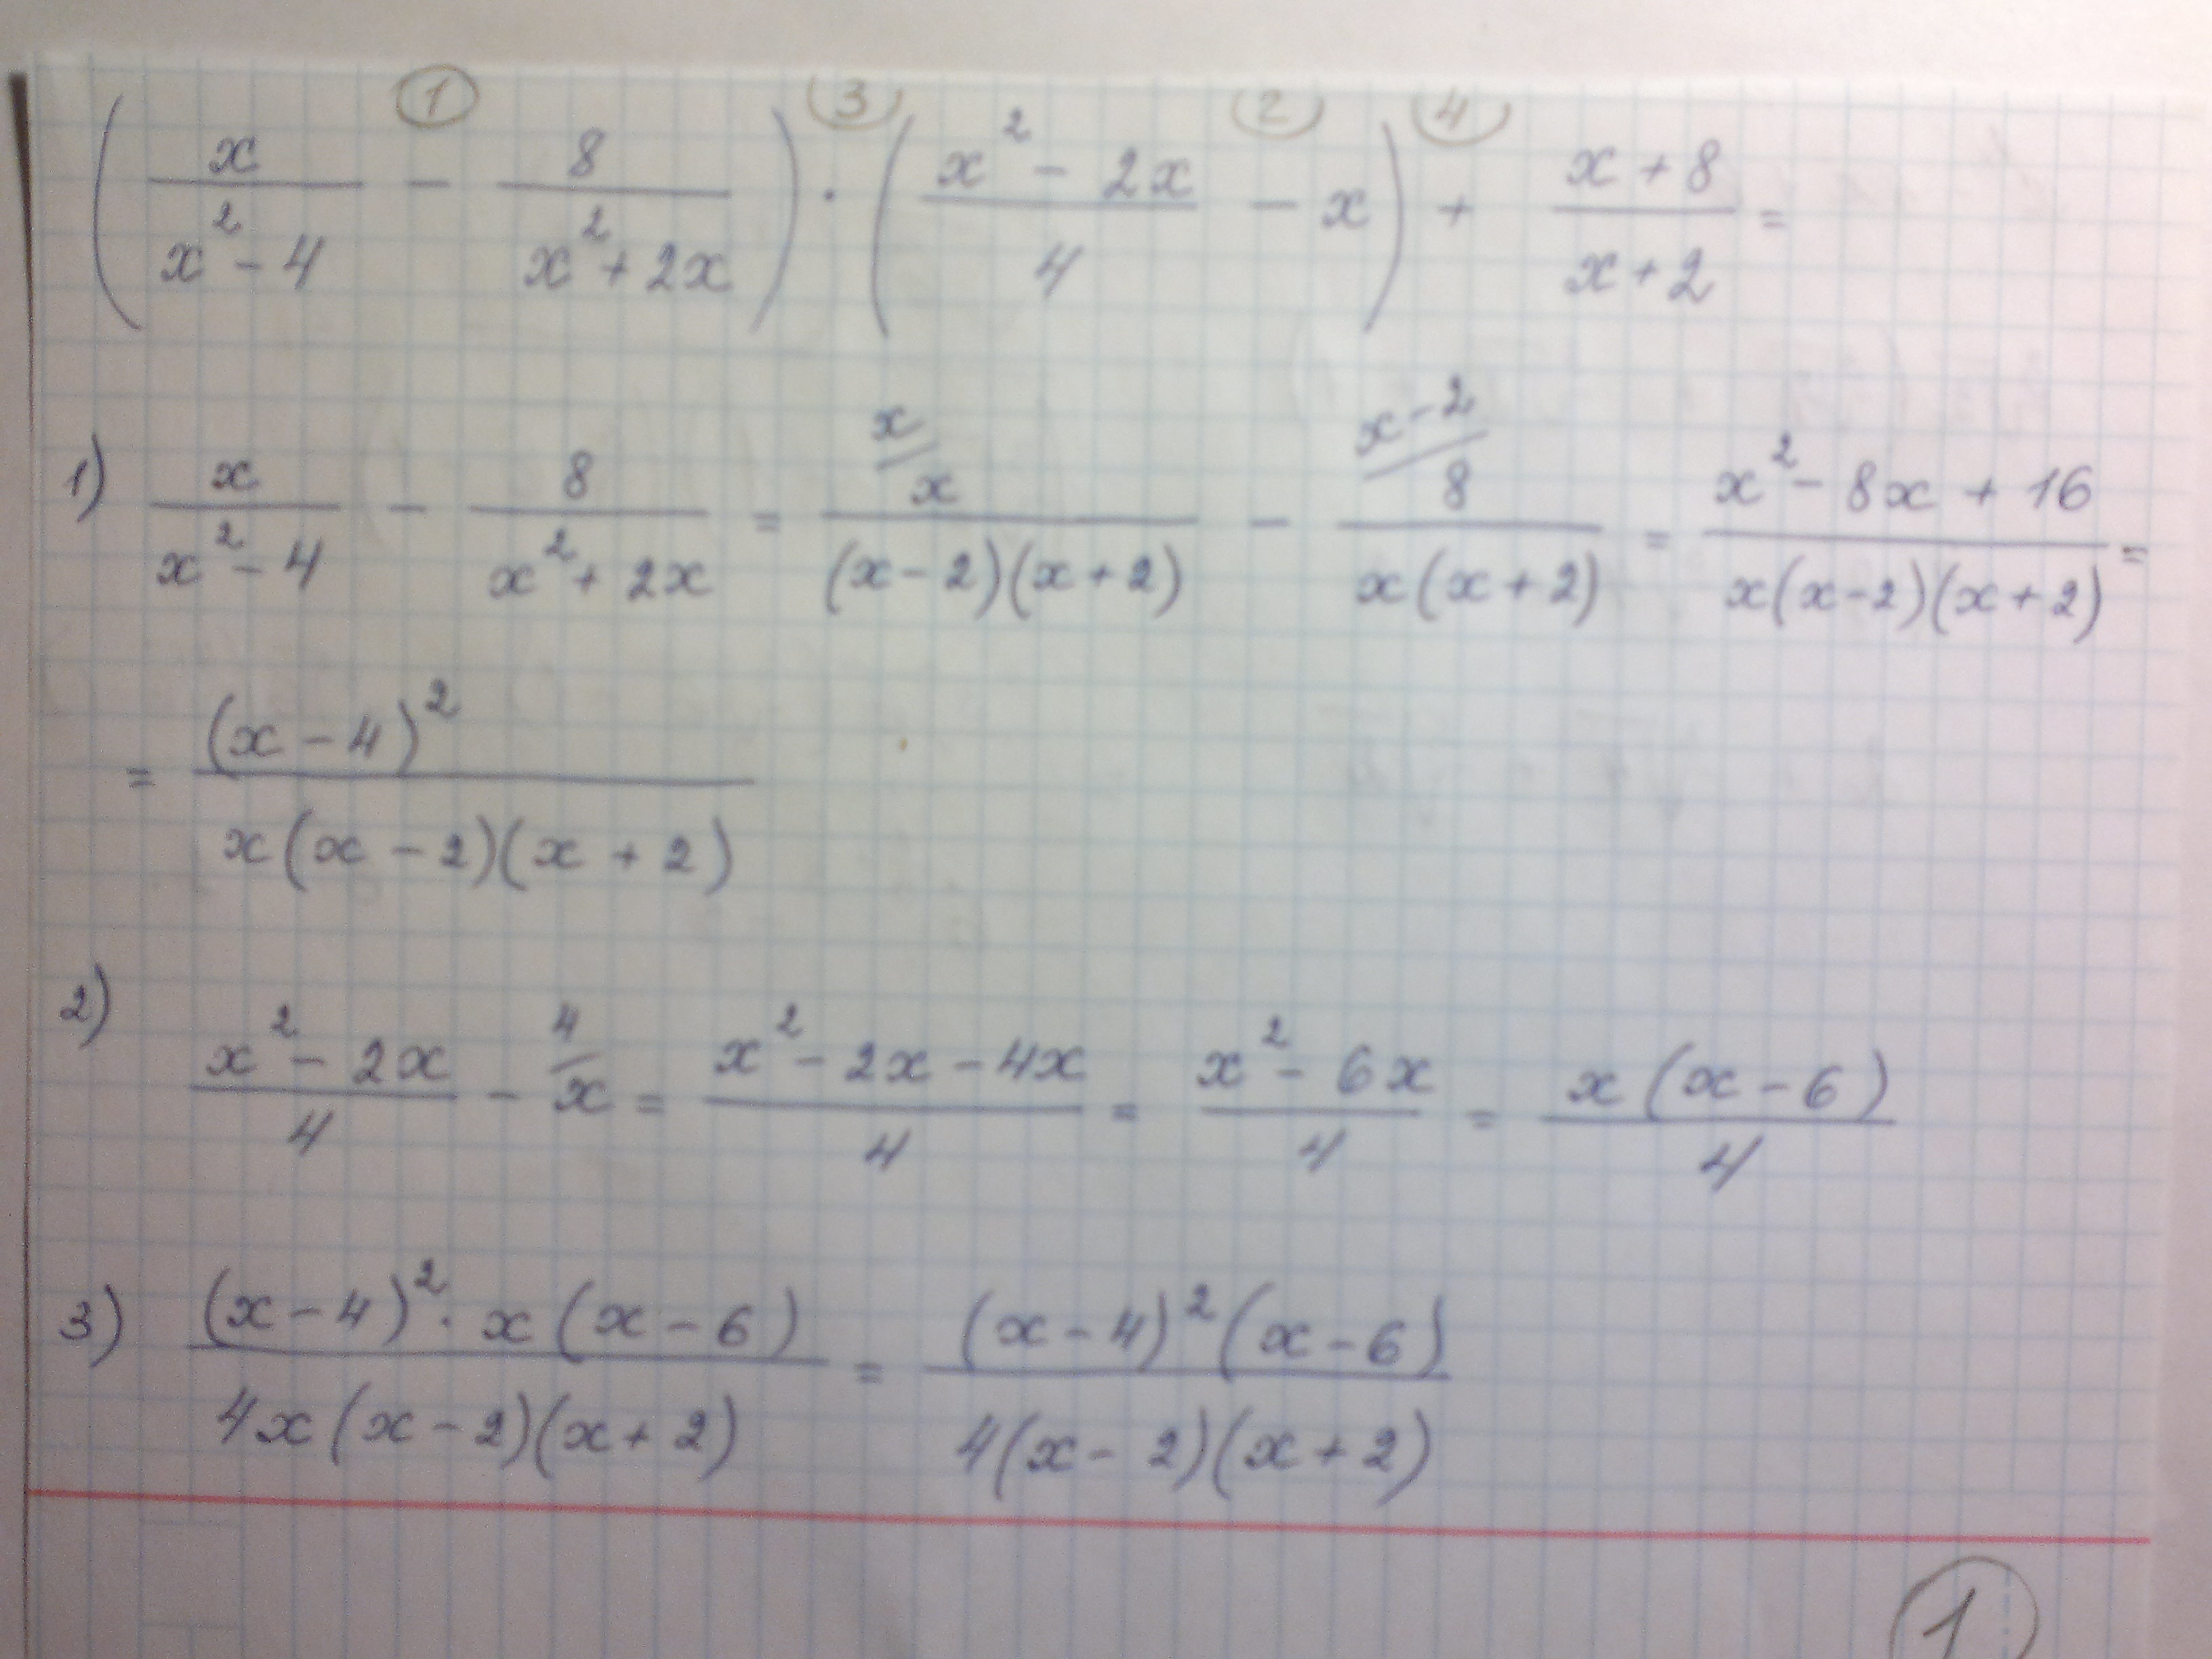 ① ③ ② ④
(x/(x²-4) - 8/(x²+2x)) · ((x²-2x)/4 - x) + (x+8)/(x+2) =
1) x/(x²-4) - 8/(x²+2x) = x/ x/((x-2)(x+2)) - x-2/ 8/(x(x+2)) = (x²-8x+16)/(x(x-2)(x+2)) =
= (x-4)²/(x(x-2)(x+2))
2) (x²-2x)/4 - 4/ x = (x²-2x-4x)/4 = (x²-6x)/4 = x(x-6)/4
3) ((x-4)² · x(x-6))/(4x(x-2)(x+2)) = ((x-4)²(x-6))/(4(x-2)(x+2))
①